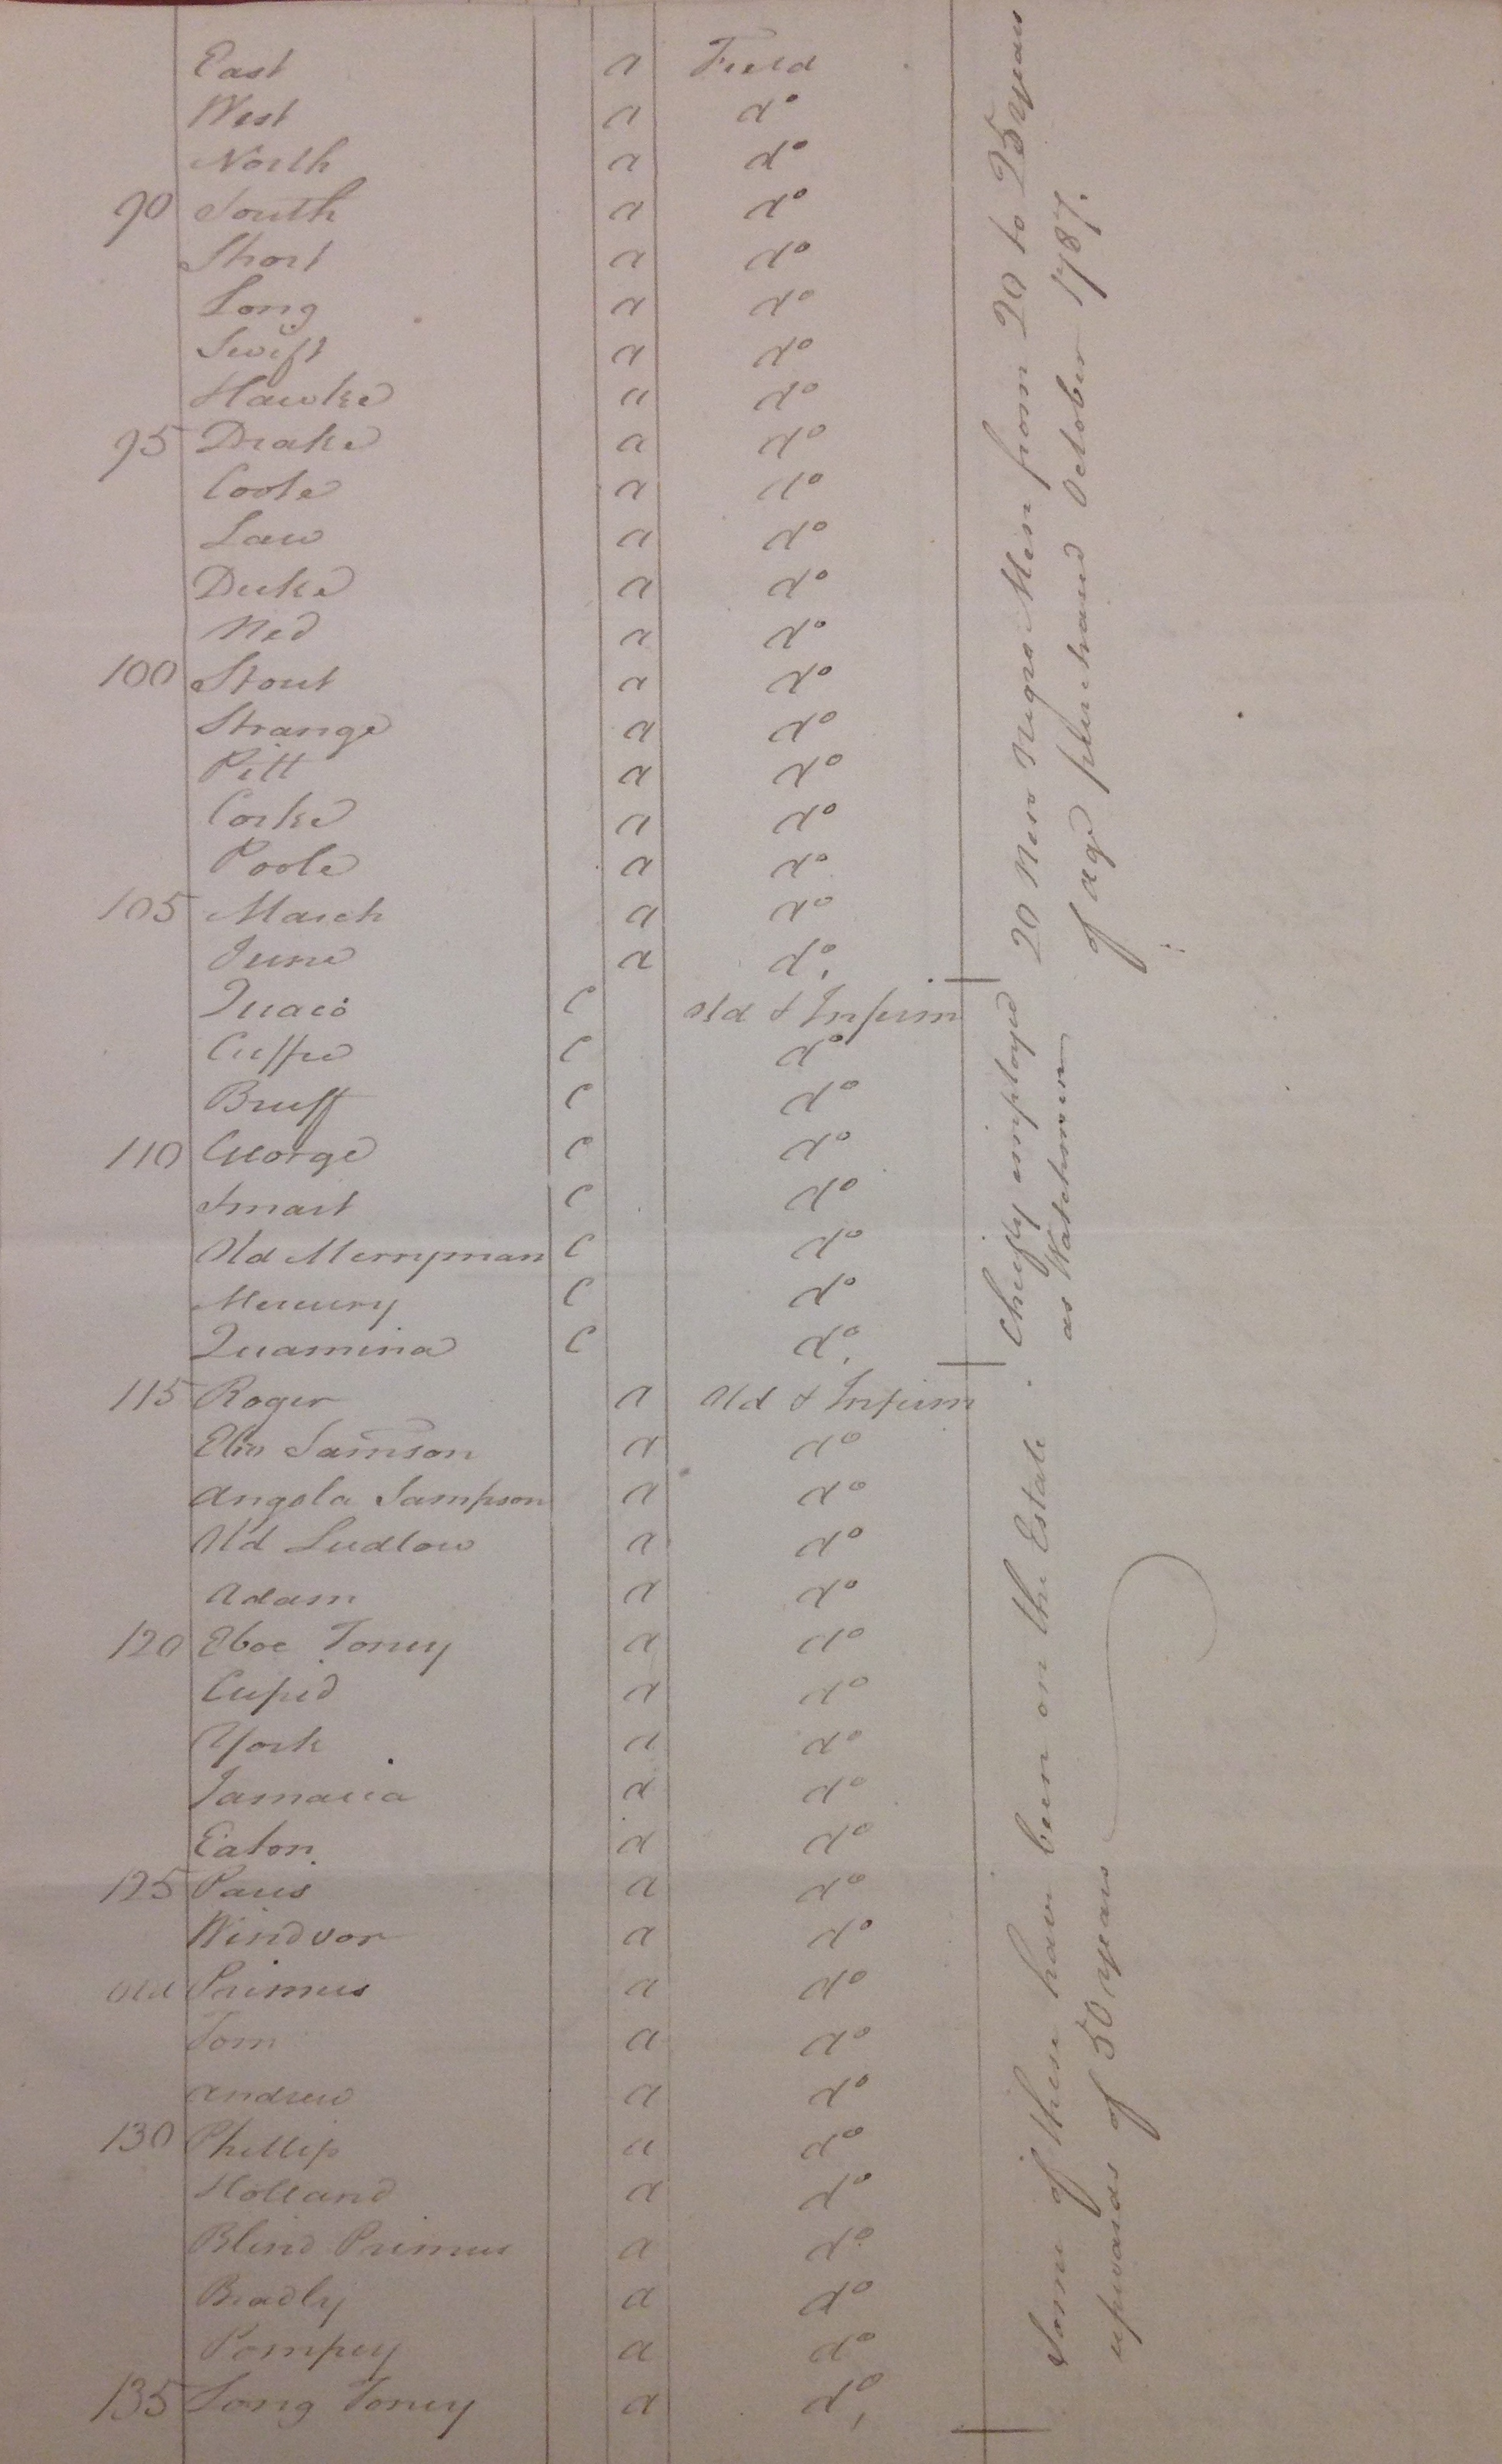 East a Field
West a do
North a do
90 South a do
Short a do
Long a do
Swift a do
Hawke a do
95 Drake a do
Coote a do
Law a do
Duke a do
Ned a do
100 Stout a do
Strange a do
Pitt a do
Corke a do
Poole a do
105 March a do
June a do.
Quaco C Old & Infirm
Cuffee C do
Bruff C do
110 George C do
Smart C do
Old Merryman C do
Mercury C do
Quamina C do.
115 Roger a Old & Infirm
Ebo Samson a do
Angola Sampson a do
Old Ludlow a do
Adam a do
120 Eboe Toney a do
Cupid a do
York a do
Jamaica a do
Eaton a do
125 Paris a do
Windsor a do
Old Primus a do
Tom a do
Andrew a do
130 Phillip a do
Holland a do
Blind Primus a do
Bradly a do
Pompey a do
135 Long Toney a do,
20 New Negro Men from 20 to 25 years
of age purchased October 1787.
Chiefly employed
as Watchmen
Some of these have been on the Estate
upwards of 50 years